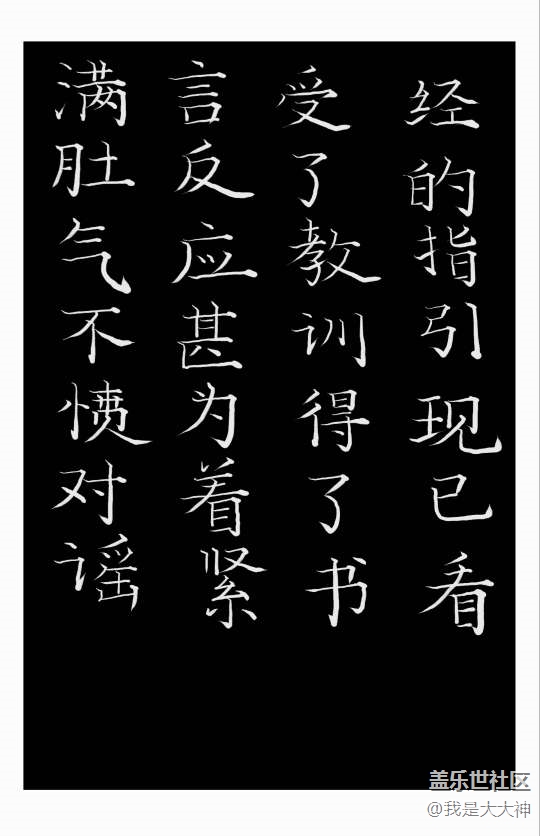 满肚气不愤对谣
言反应甚为着紧
受了教训得了书
经的指引现已看
盖乐世社区
@我是大大神